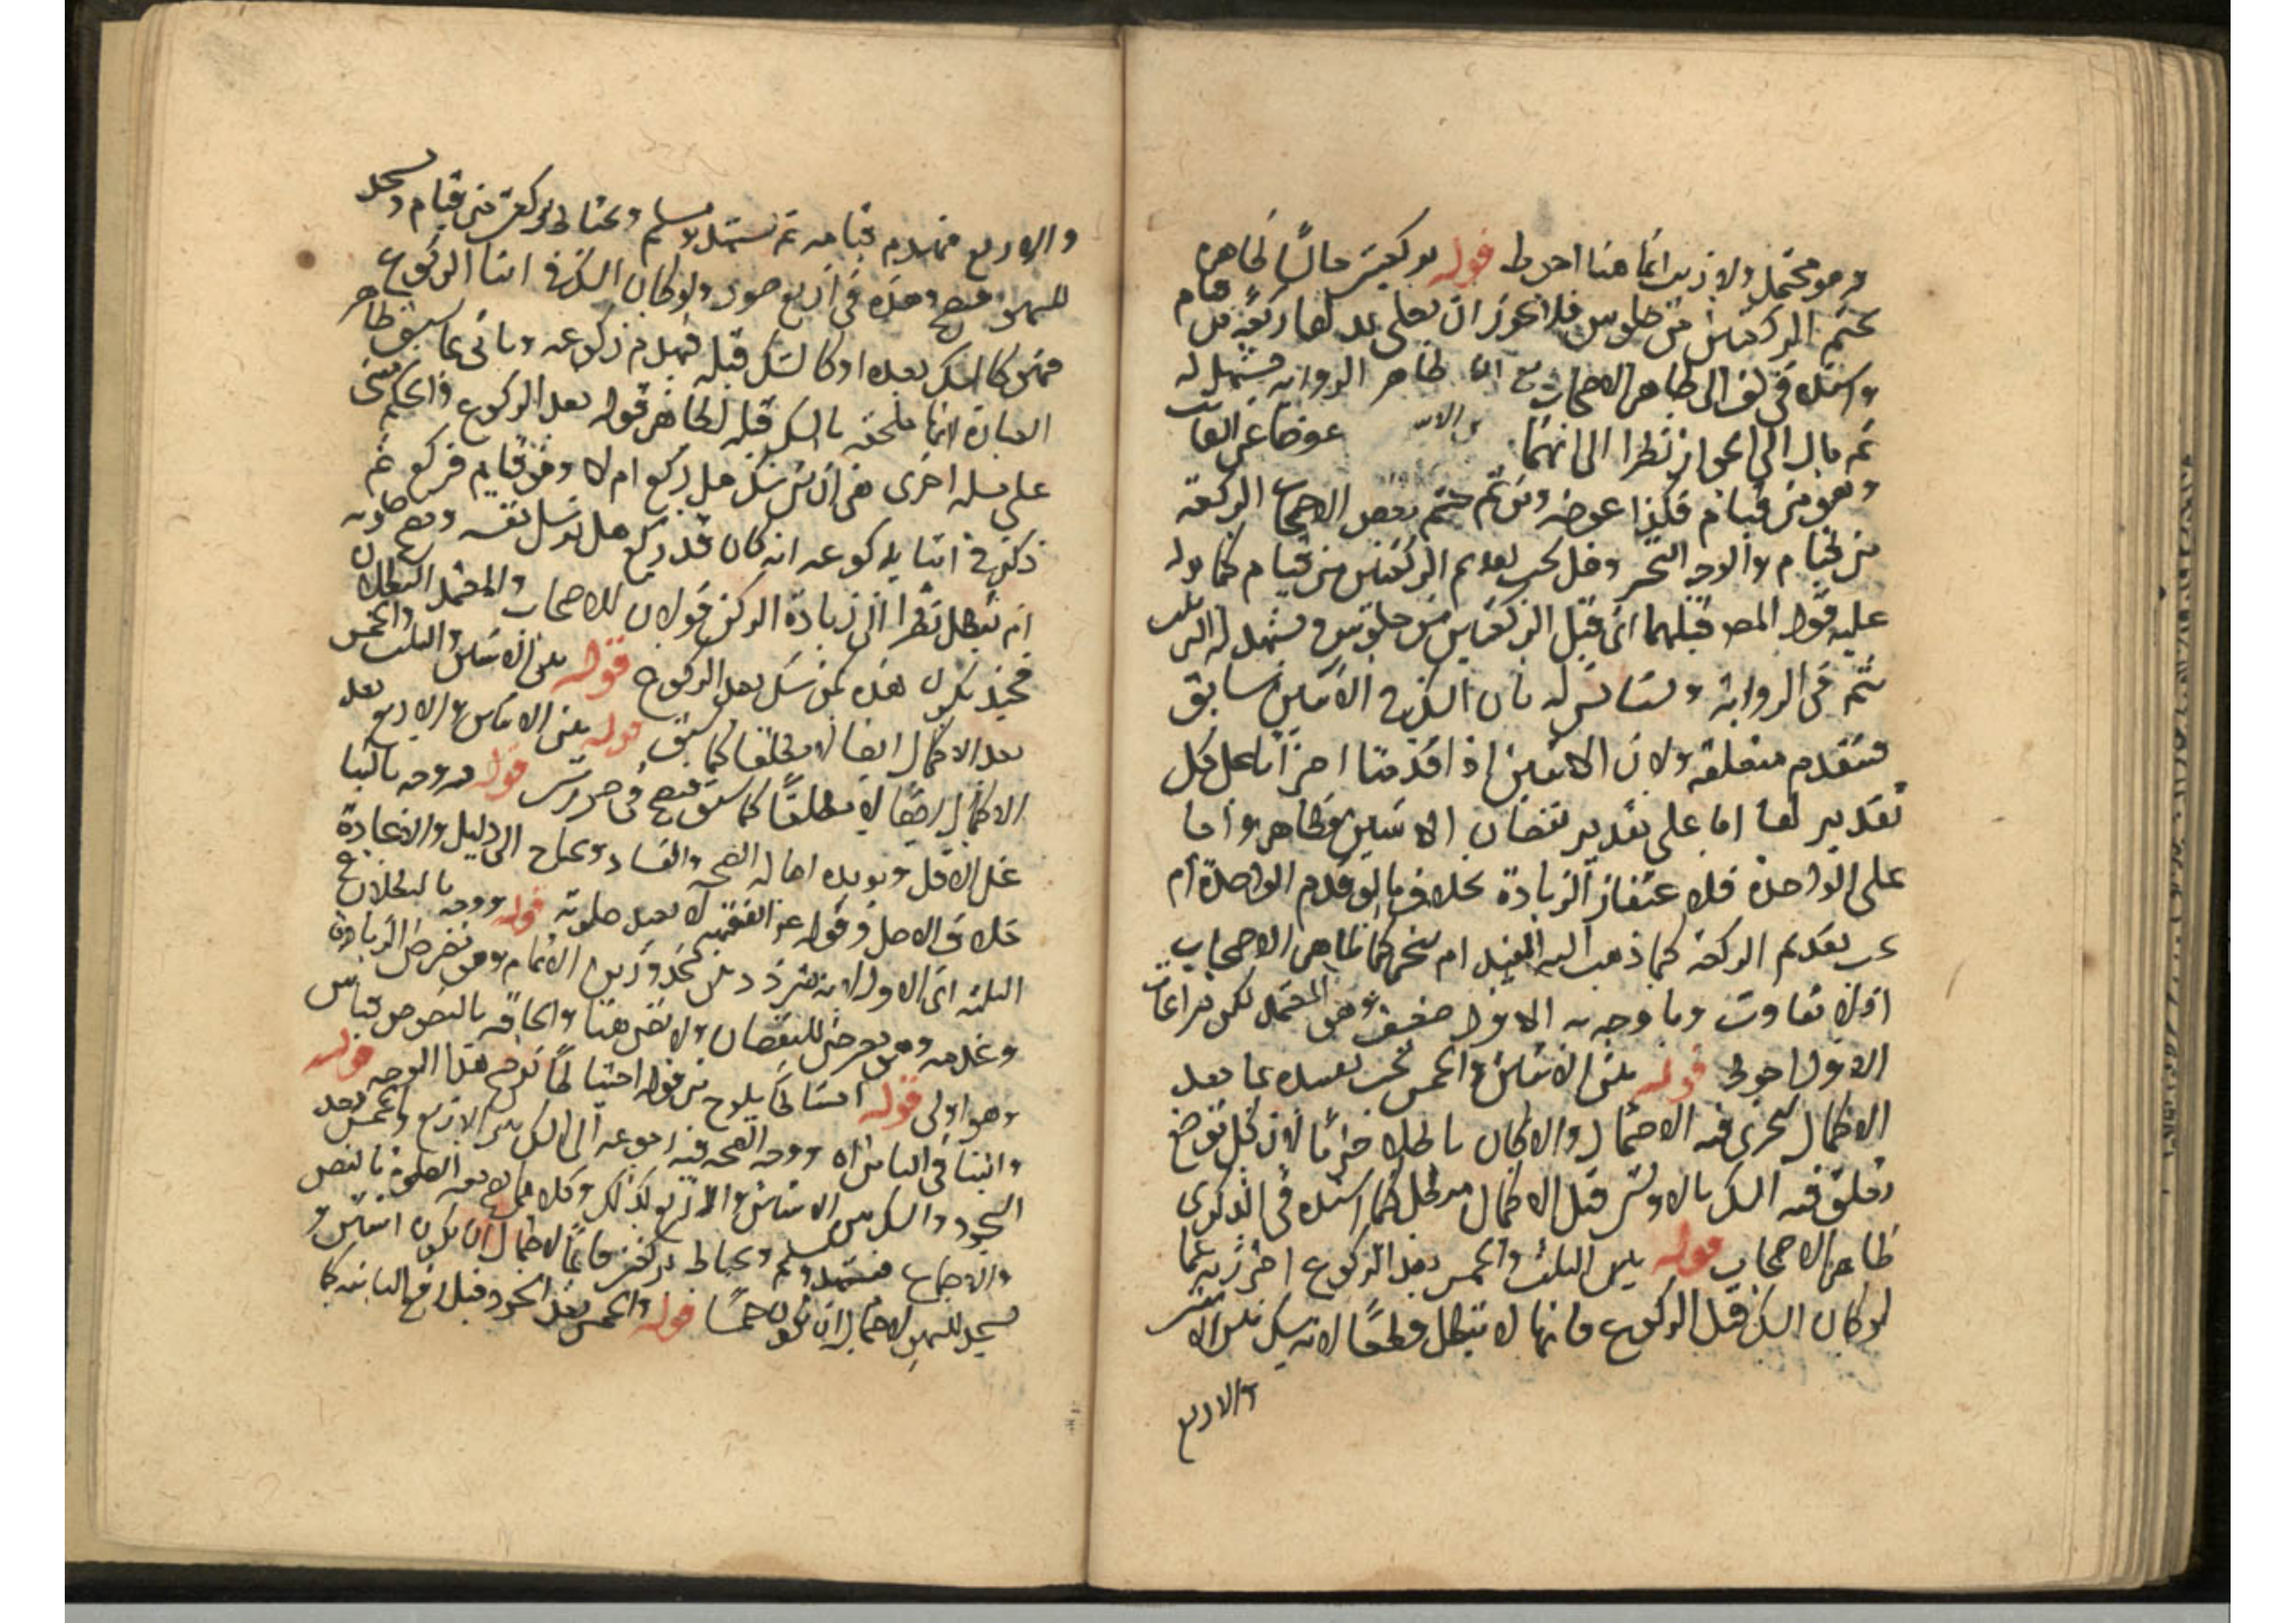 وهو محتمل ولا ريب انها هنا احوط قوله بركعتين جالسا ظاهره
تحتم الركعتين من جلوس فلا يجوز ان يصلي بدلهما ركعة من قيام
واسنده في الى ظاهر الاصحاب مع ان ظاهر الرواية يشهد له
ثم مال الى الجواز نظرا الى انهما عوضا عن الفائت
وهو من قيام فكذا عوضه ومن ثم حتم بعض الاصحاب الركعة
من قيام والاوجه التخير وهل يجب تقديم الركعتين من قيام كما يدل
عليه قول المص قبلهما اي قبل الركعتين من جلوس ويشهد له
ثم في الرواية بان الشك في الاثنين سابق
فتقدم متعلقه ولان الاثنين اذا قدمتا اجزأتا على كل
تقدير لهما اما على تقدير نقصان الاثنين فظاهر واما
على الواحدة فلاغتفار الزيادة بخلاف ما لو قدم الواحدة ام
يجب تقديم الركعة كما ذهب اليه المفيد ام يتخير كما ظاهر الاصحاب
اذ لا تفاوت وما وجه به الاول ضعيف وهو المعتمد لكن مراعات
الاول احوط قوله بين الاثنين والخمس يجب تقييده بما بعد
الاكمال ليجري فيه الاحتمال والا كان باطلا جزما لان كل موضع
تعلق فيه الشك بالاولتين قبل الاكمال مبطل كما اسنده في الذكرى
ظاهر الاصحاب قوله بين الثلث والخمس بعد الركوع احترز به عما
لو كان الشك قبل الركوع فانها لا تبطل قطعا لانه شك بين الاثنين
والاربع
والاربع فيهدم قيامه ثم يتشهد ويسلم ويحتاط بركعتين من قيام ويسجد
للسهو فتصح وهذه في اربع صور ولو كان الشك في اثنا الركوع
فهل كالشك بعده او كالشك قبله فيهدم ركوعه وياتي بما سبق ظاهر
العبارة انها ملحقة بالشك قبله لظاهر قوله بعد الركوع والحكم مبني
على مسئلة اخرى هي ان من شك هل ركع ام لا وهو قايم فركع ثم
ذكر في اثنا ركوعه انه كان قد ركع هل يرسل نفسه وتصح صلوته
ام تبطل نظرا الى زيادة الركن قولان للاصحاب والمعتمد البطلان
فحينئذ يكون هذه كمن شك بعد الركوع قوله بين الاثنين والثلث والخمس
بعد الاكمال ايضا لا مطلقا كما سبق قوله بين الاثنين والاربع بعد
الاكمال ايضا لا مطلقا كما سبق فتصح في صورتين قوله ووجه بالبنا
على الاقل ويؤيده اصالة الصحة والفساد يحتاج الى دليل والاعادة
خلاف الاصل وقوله ع الفقيه لا يعيد صلوته قوله ووجه بالبطلان في
الثلثة اي الاول لانه متردد بين محذورين الاتمام وهو معرض للزيادة
وعدمه وهو معرض للنقصان ولا نص هنا والحاقه بالنصوص قياس
وهو اولى قوله امتثالا يلوح من قوله احتياطا ترجيح هذا الوجه قوله
والبنا في الثامن اه ووجه الصحة فيه رجوعه الى الشك بين الاربع والخمس بعد
السجود والشك بين الاثنين والاربع كذلك وكلاهما يصح معه الصلوة بالنص
والاجماع فيتشهد ويسلم ويحتاط بركعتين قائما لاحتمال ان يكون اثنتين و
يسجد للسهو لاحتمال ان تكون خمسا قوله والخمس بعد السجود وقبل رفع الثانية كما